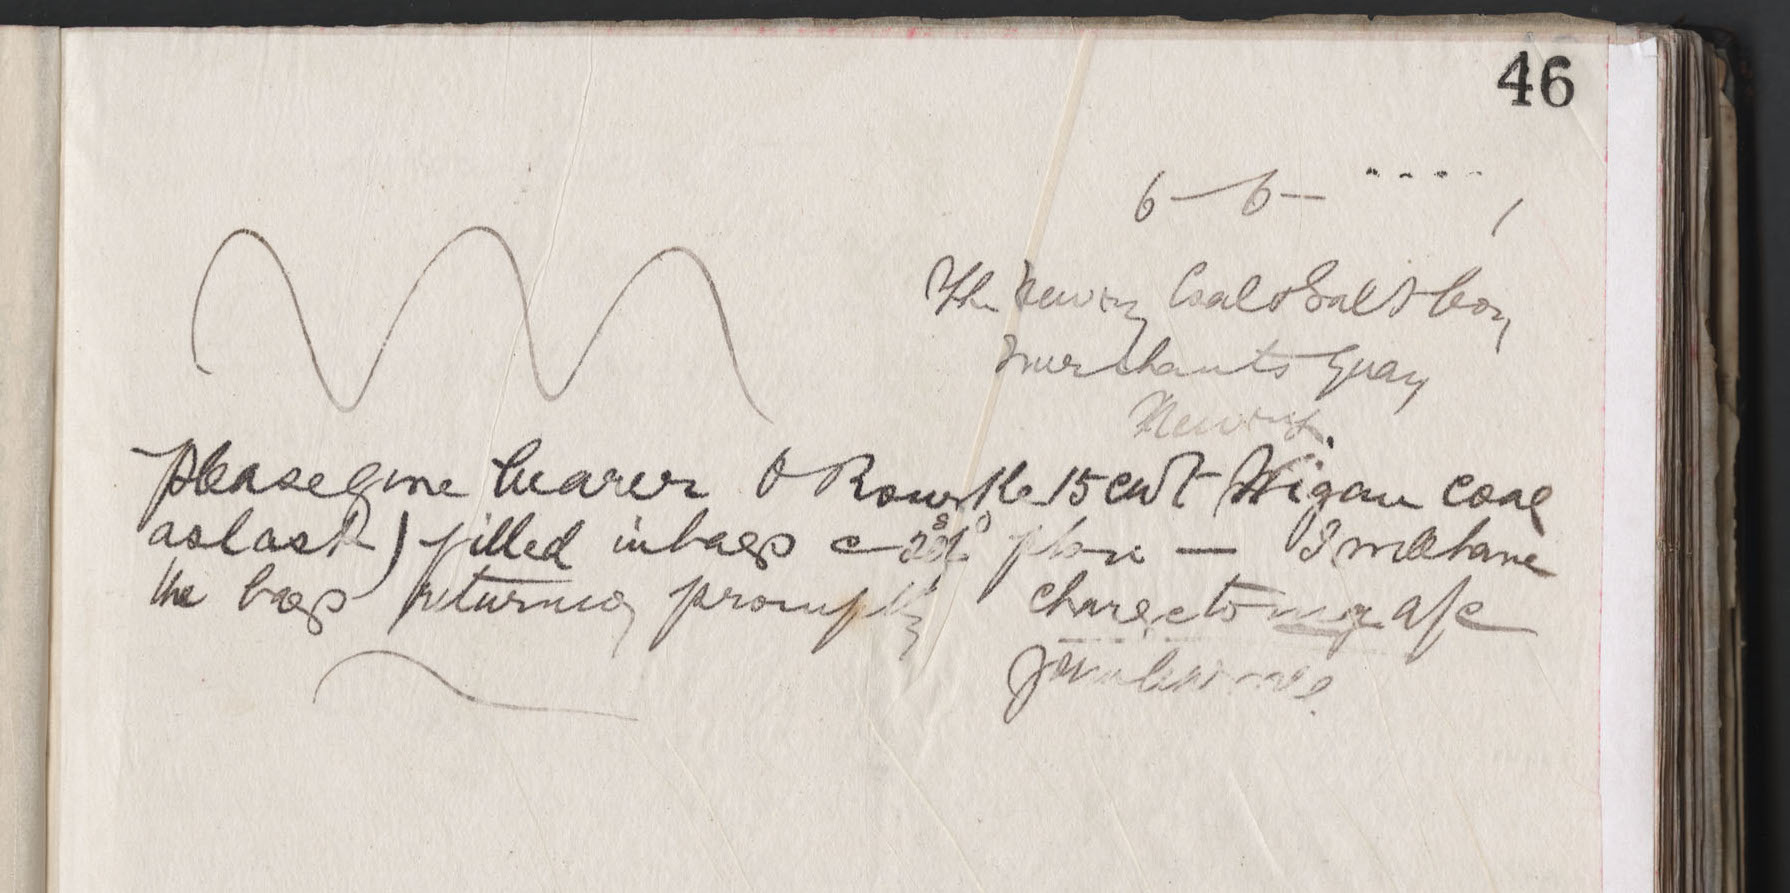 46
6-6-
The Newry Coal & Salt Coy
Merchants Quay
Newry
Please give bearer O Rourke 15 cwt Wigan coal
as last) filled in bags c 20/- plain — I will have
the bags returned promptly charge to my a/c